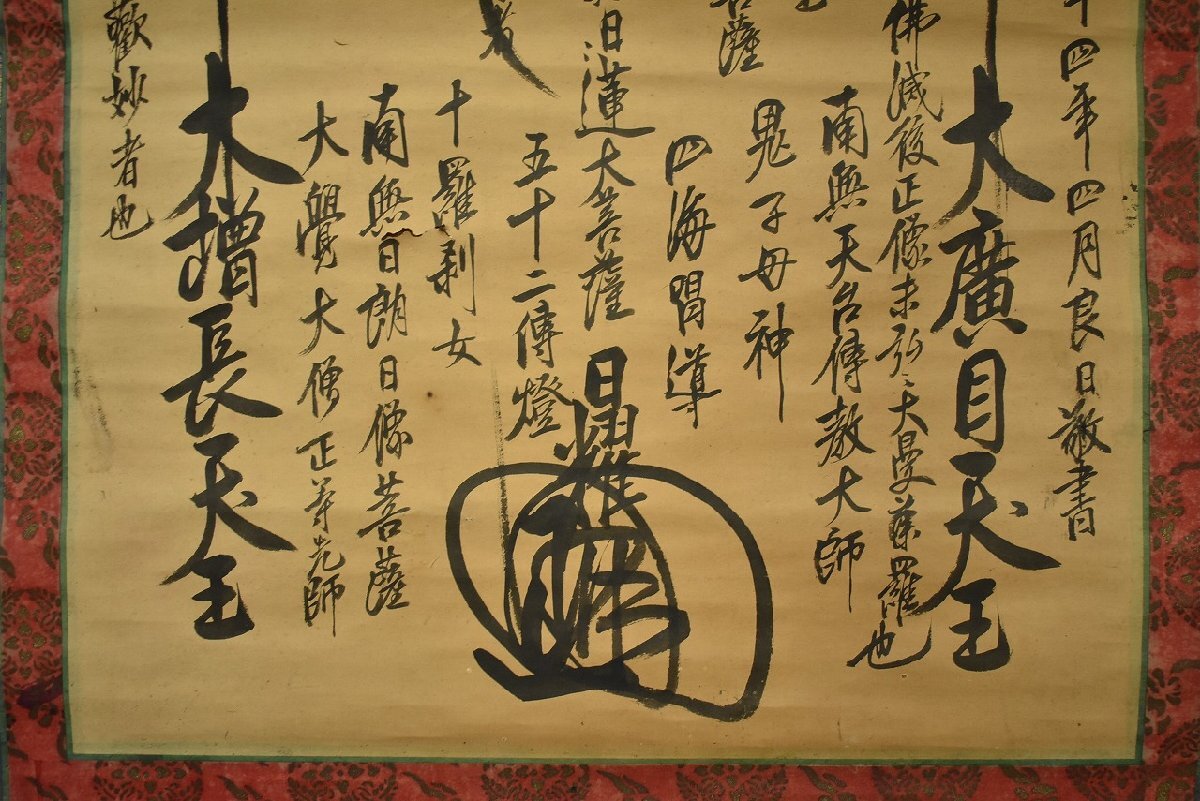 十四年四月良日敬書
大廣目天王
佛滅後正像未弘之大曼荼羅也
南無天台傳教大師
鬼子母神
薩
四海唱導
日蓮大菩薩
日耀
五十二傳燈
者
十羅刹女
南無日朗日像菩薩
大覺大僧正等先師
大增長天王
歡妙者也